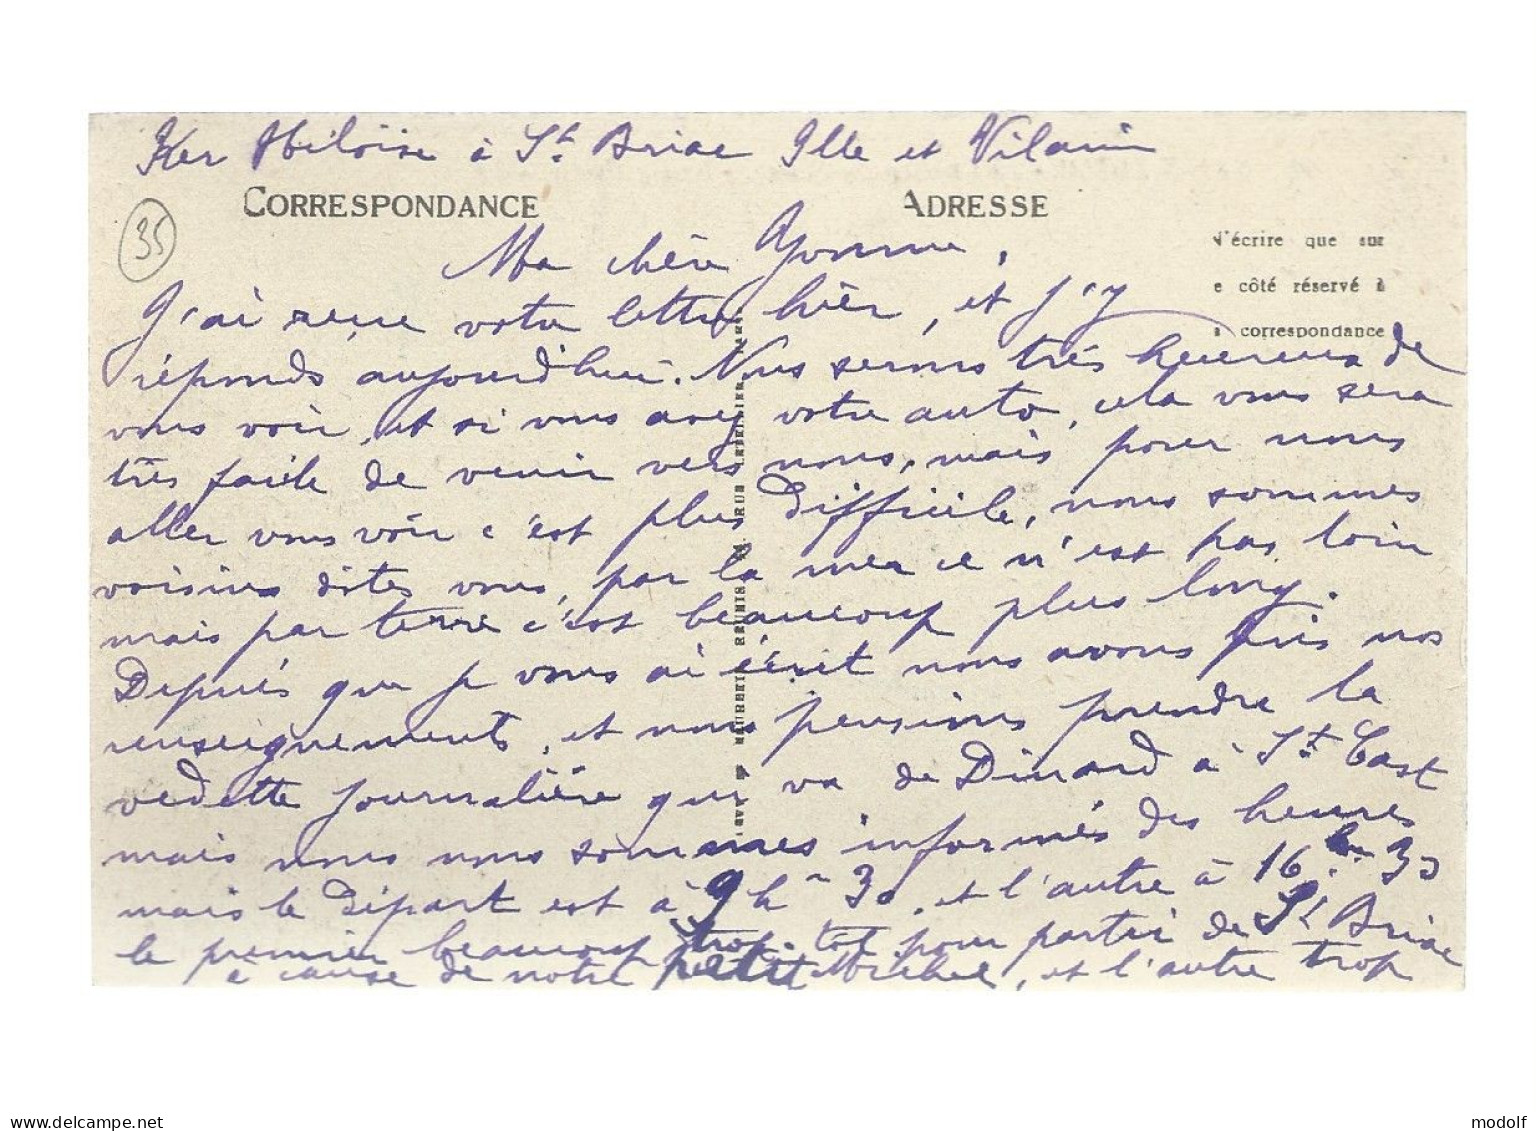 Ker Héloïse à St. Briac Ille et Vilaine
CORRESPONDANCE ADRESSE
35
N'écrire que sur
e côté réservé à
a correspondance
Ma chère Yvonne,
J'ai reçue votre lettre hier, et j'y
réponds aujourd'hui. Nous serons très heureux de
vous voir, et si vous avez votre auto, cela vous sera
très facile de venir vers nous, mais pour nous
aller vous voir c'est plus difficile, nous sommes
voisins dites vous, par la mer ce n'est pas loin
mais par terre c'est beaucoup plus long.
Depuis que je vous ai écrit nous avons pris nos
renseignements, et nous pensions prendre la
vedette journalière qui va de Dinard à St. Cast
mais nous nous sommes informés des heures
mais le départ est à 9 h 30, et l'autre à 16 h 30
le premier beaucoup trop tot pour partir de St Briac
à cause de notre petit Michel, et l'autre trop
REUNIS RUE
www.delcampe.net
modolf